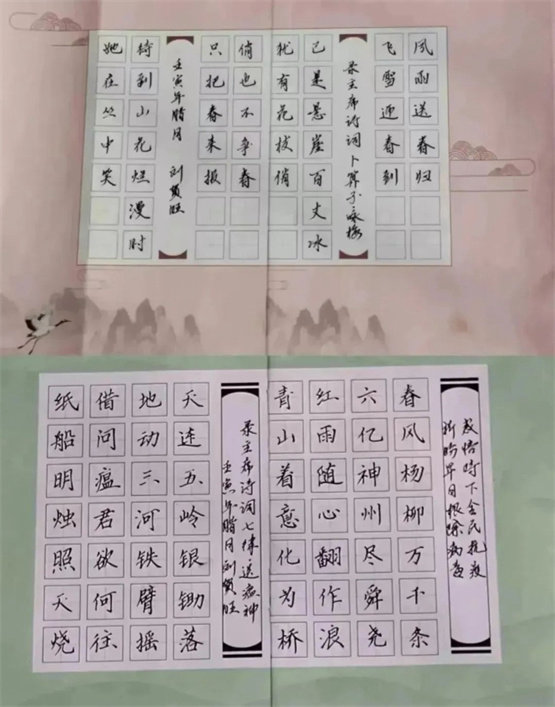 风雨送春归
飞雪迎春到
录主席诗词卜算子咏梅
已是悬崖百丈冰
犹有花枝俏
俏也不争春
只把春来报
壬寅年腊月 刘贺旺
待到山花烂漫时
她在丛中笑
时下全民抗疫
祈盼早日根除病疫
春风杨柳万千条
六亿神州尽舜尧
红雨随心翻作浪
青山着意化为桥
录主席诗词七律送瘟神
壬寅年腊月刘贺旺
天连五岭银锄落
地动三河铁臂摇
借问瘟君欲何往
纸船明烛照天烧